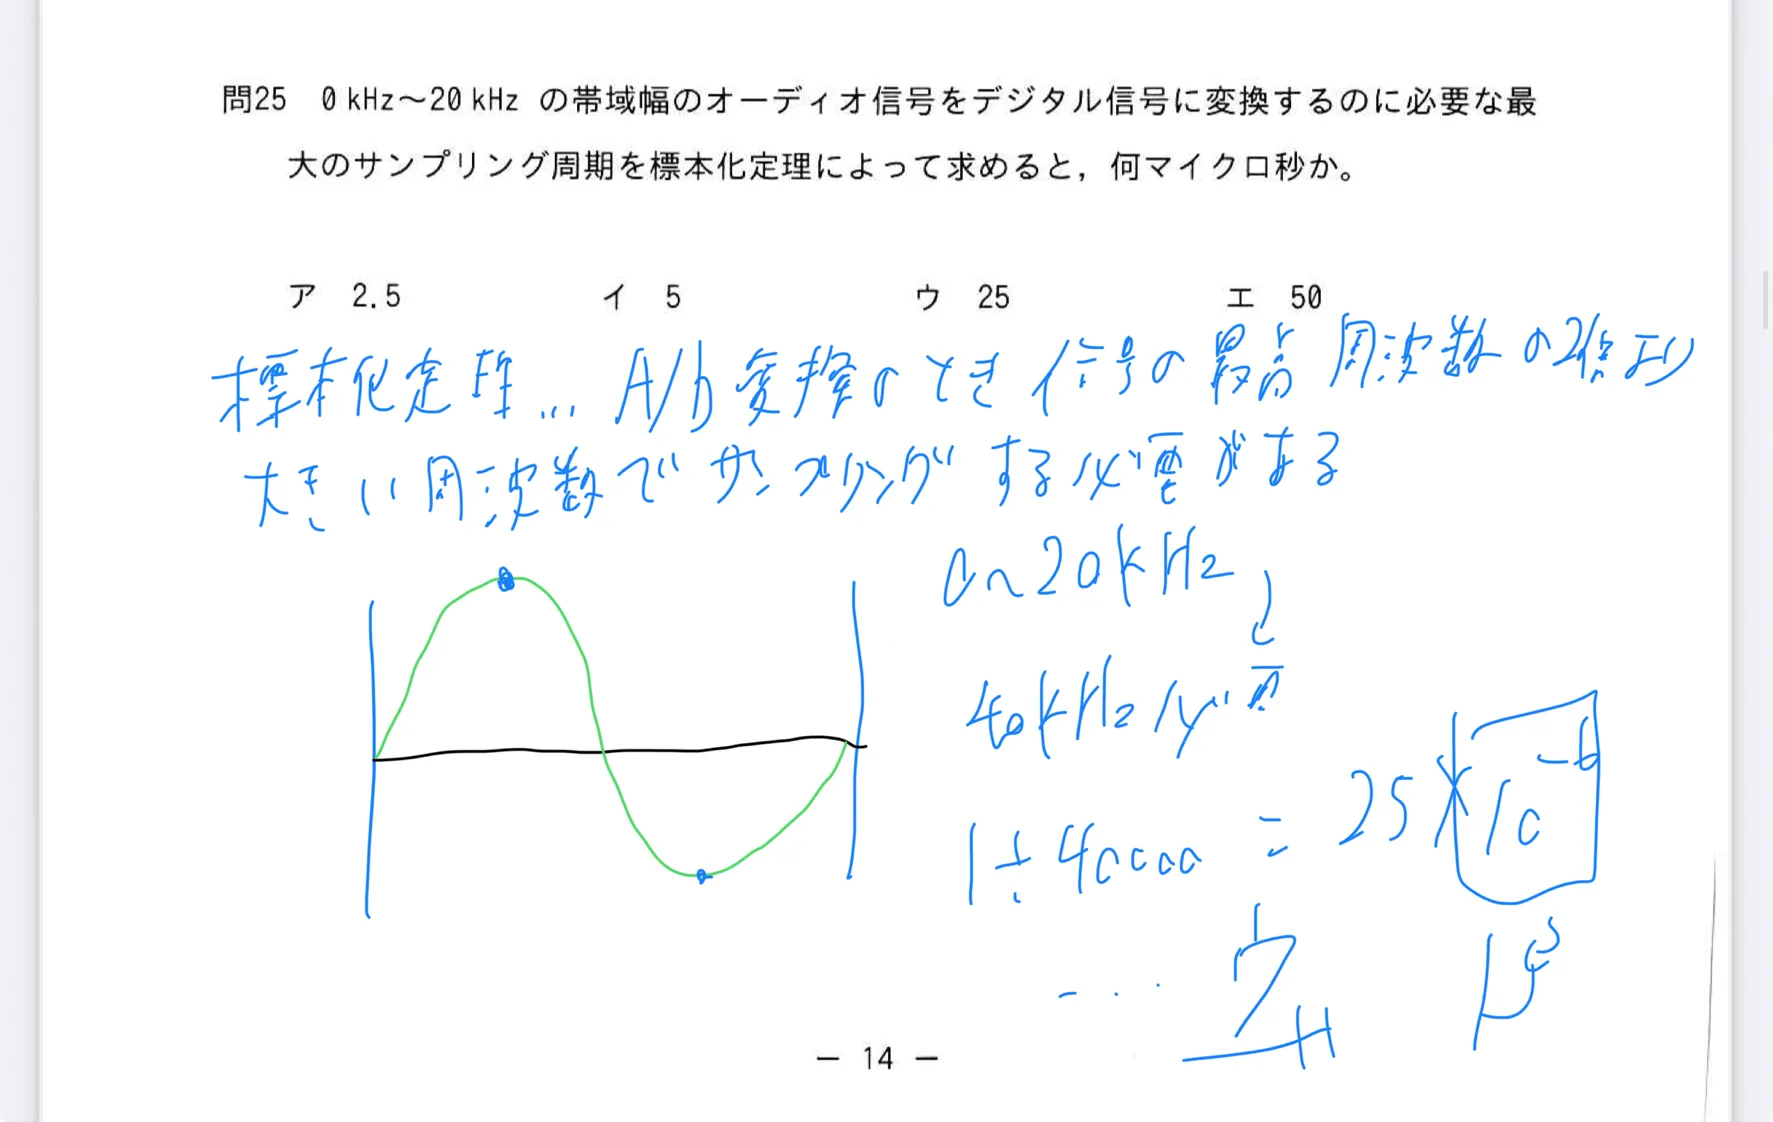 問25 0 kHz～20 kHz の帯域幅のオーディオ信号をデジタル信号に変換するのに必要な最
大のサンプリング周期を標本化定理によって求めると，何マイクロ秒か。
ア 2.5 イ 5 ウ 25 エ 50
標本化定理... A/D変換のとき信号の最高周波数の2倍より
大きい周波数でサンプリングする必要がある
0~20kHz
40kHz必要
1÷40000 = 25×10⁻⁶
μs
ウ
— 14 —